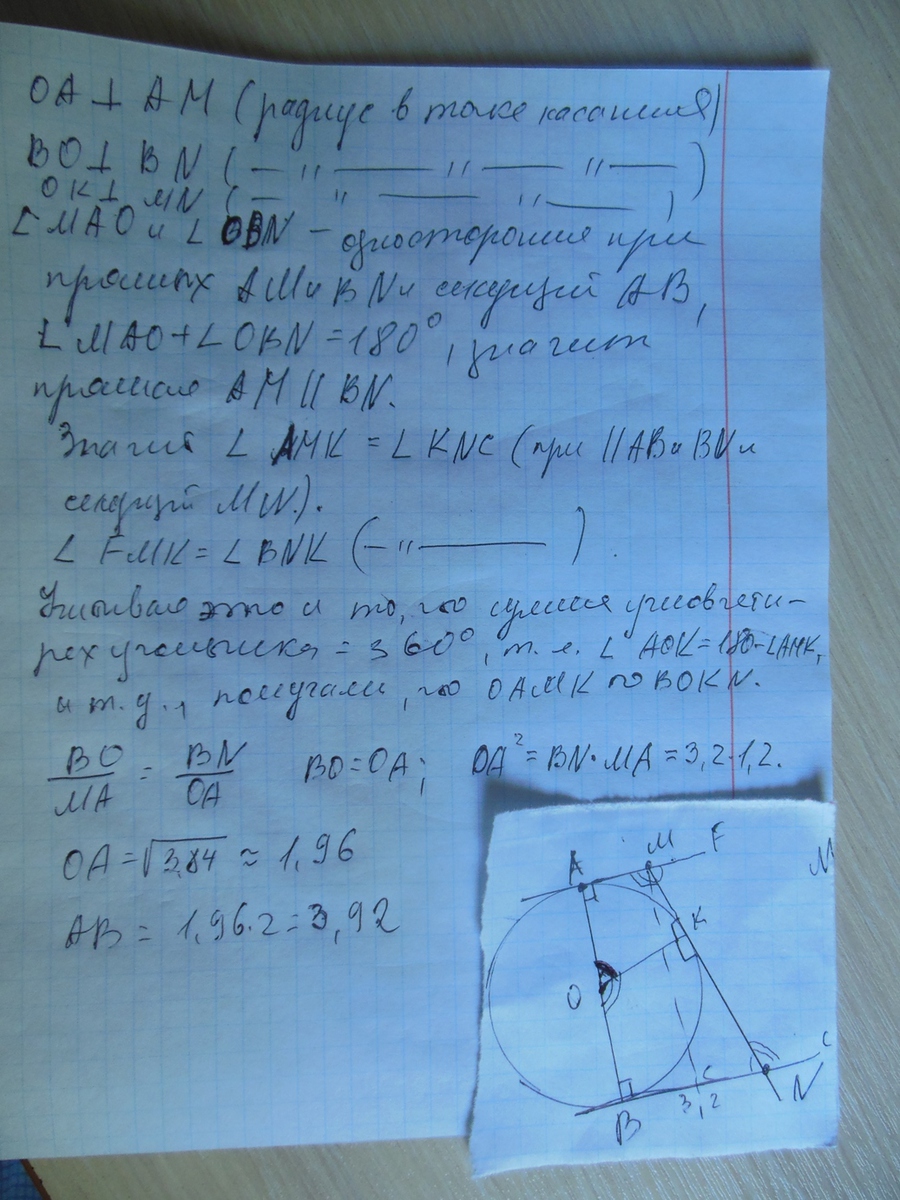 OA ⊥ AM (радиус в точке касания)
BO ⊥ BN ( — " — " — " — )
OK ⊥ MN ( — " — " — )
∠ MAO и ∠ OBN - односторонния при
прямых AM и BN и секущий AB,
∠ MAO + ∠ OBN = 180°, значит
прямая AM || BN.
Значит ∠ AMK = ∠ KNC (при || AB и BN и
секущий MN).
∠ FMK = ∠ BNK ( — " — ).
Учитывая это и то, что сумма углов четы-
рехугольника = 360°, т.е. ∠ AOK = 180 - ∠AMK,
и т.д., получали, что OAMK ~ BOKN.
BO/MA = BN/OA BO = OA; OA² = BN · MA = 3,2 · 1,2.
OA = √3,84 ≈ 1,96
AB = 1,96 · 2 = 3,92
A M F M
K
O
C C
B 3,2 N